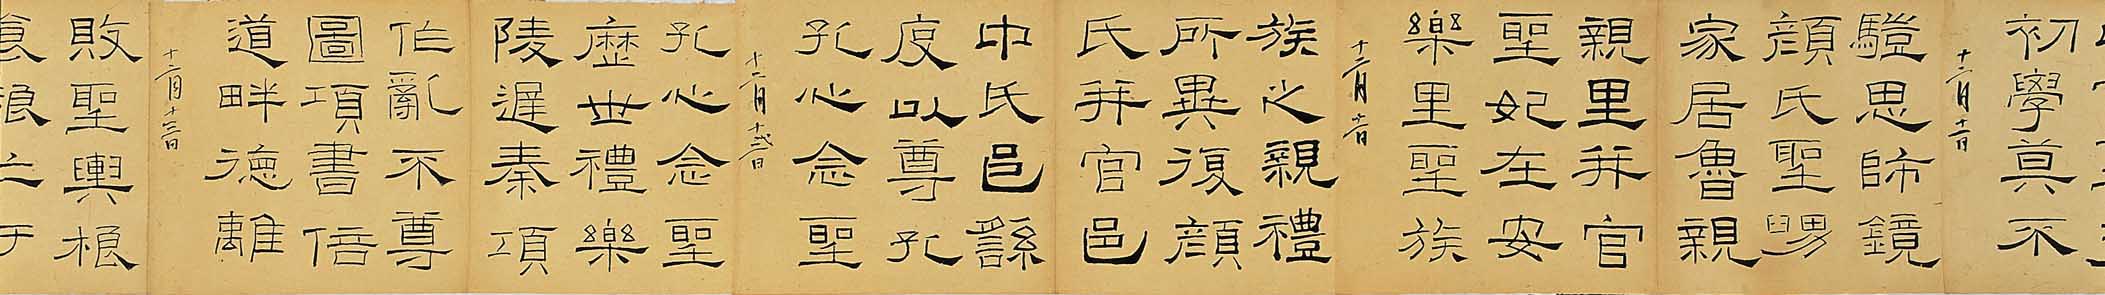 初學莫不
十二月十一日
驥思師鏡
顏氏聖舅
家居魯親
親里并官
聖妃在安
樂里聖族
十二月
族之親禮
所異復顏
氏并官邑
中氏邑繇
度以尊孔
孔心念聖
十二月十二日
孔心念聖
歷世禮樂
陵遲秦項
作亂不尊
圖項書倍
道畔德離
十二月十三日
敗聖輿根
食糧亡于